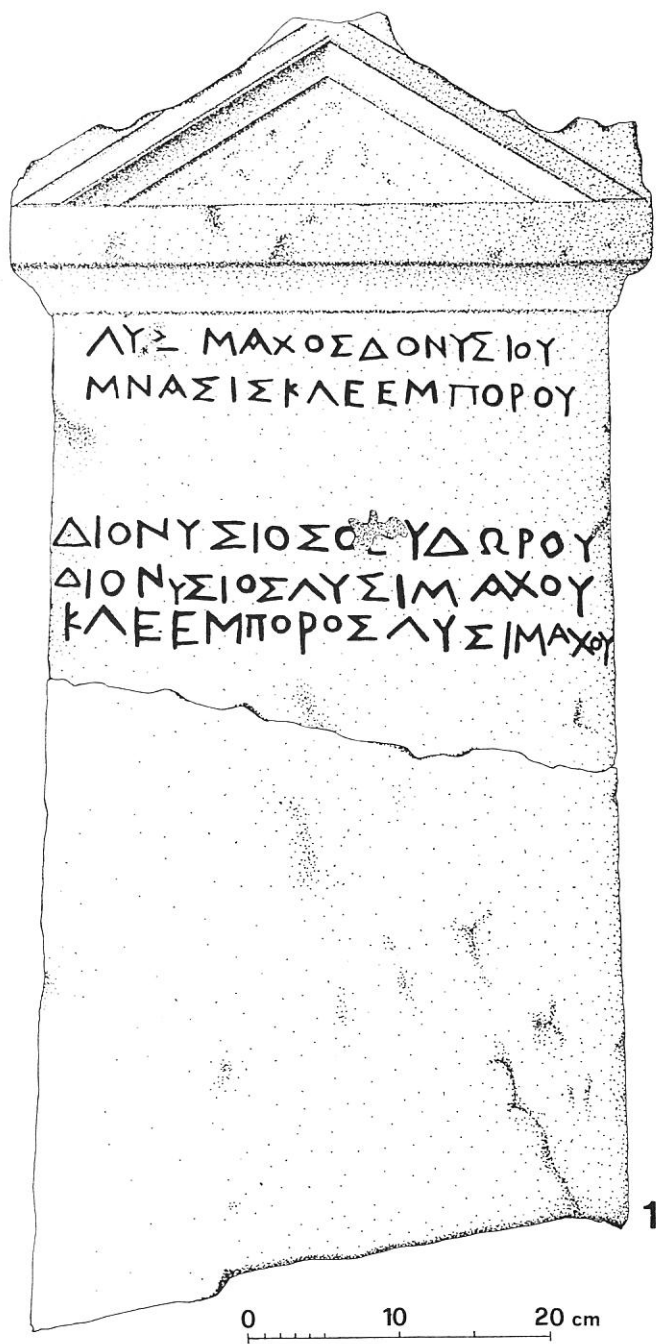 ΛΥΣ ΜΑΧΟΣΔΟΝΥΣΙΟΥ
ΜΝΑΣΙΣΚΛΕΕΜΠΟΡΟΥ
ΔΙΟΝΥΣΙΟΣΟ ΥΔΩΡΟΥ
ΔΙΟΝΥΣΙΟΣΛΥΣΙΜΑΧΟΥ
ΚΛΕΕΜΠΟΡΟΣΛΥΣΙΜΑΧΟΥ
1
0 10 20 cm